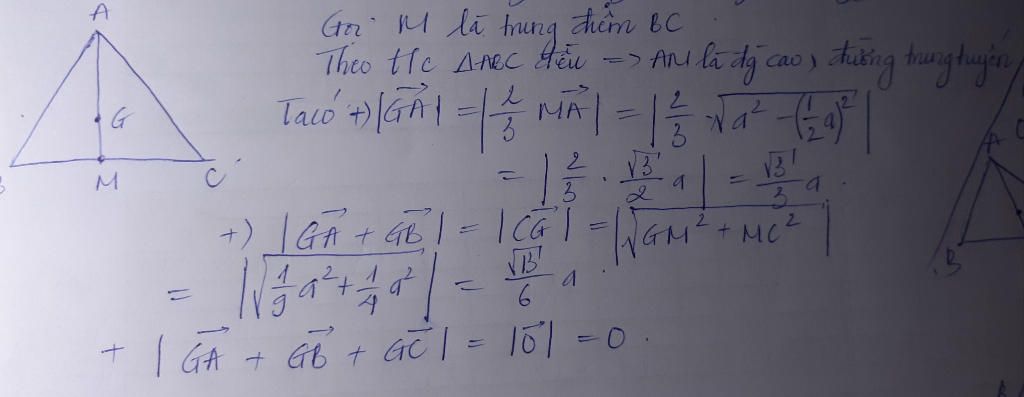 A
G
M
C
Gọi M là trung điểm BC
Theo t/c ΔABC đều => AM là đg cao, đường trung tuyến
Ta có +) |GA→| = |2/3 MA→| = |2/3 · √(a² - (1/2 a)²)|
= |2/3 · √3/2 a| = √3/3 a.
+) |GA→ + GB→| = |CG→| = |√(GM² + MC²)|
= |√(1/9 a² + 1/4 a²)| = √13/6 a.
+ |GA→ + GB→ + GC→| = |0→| = 0.
A
B